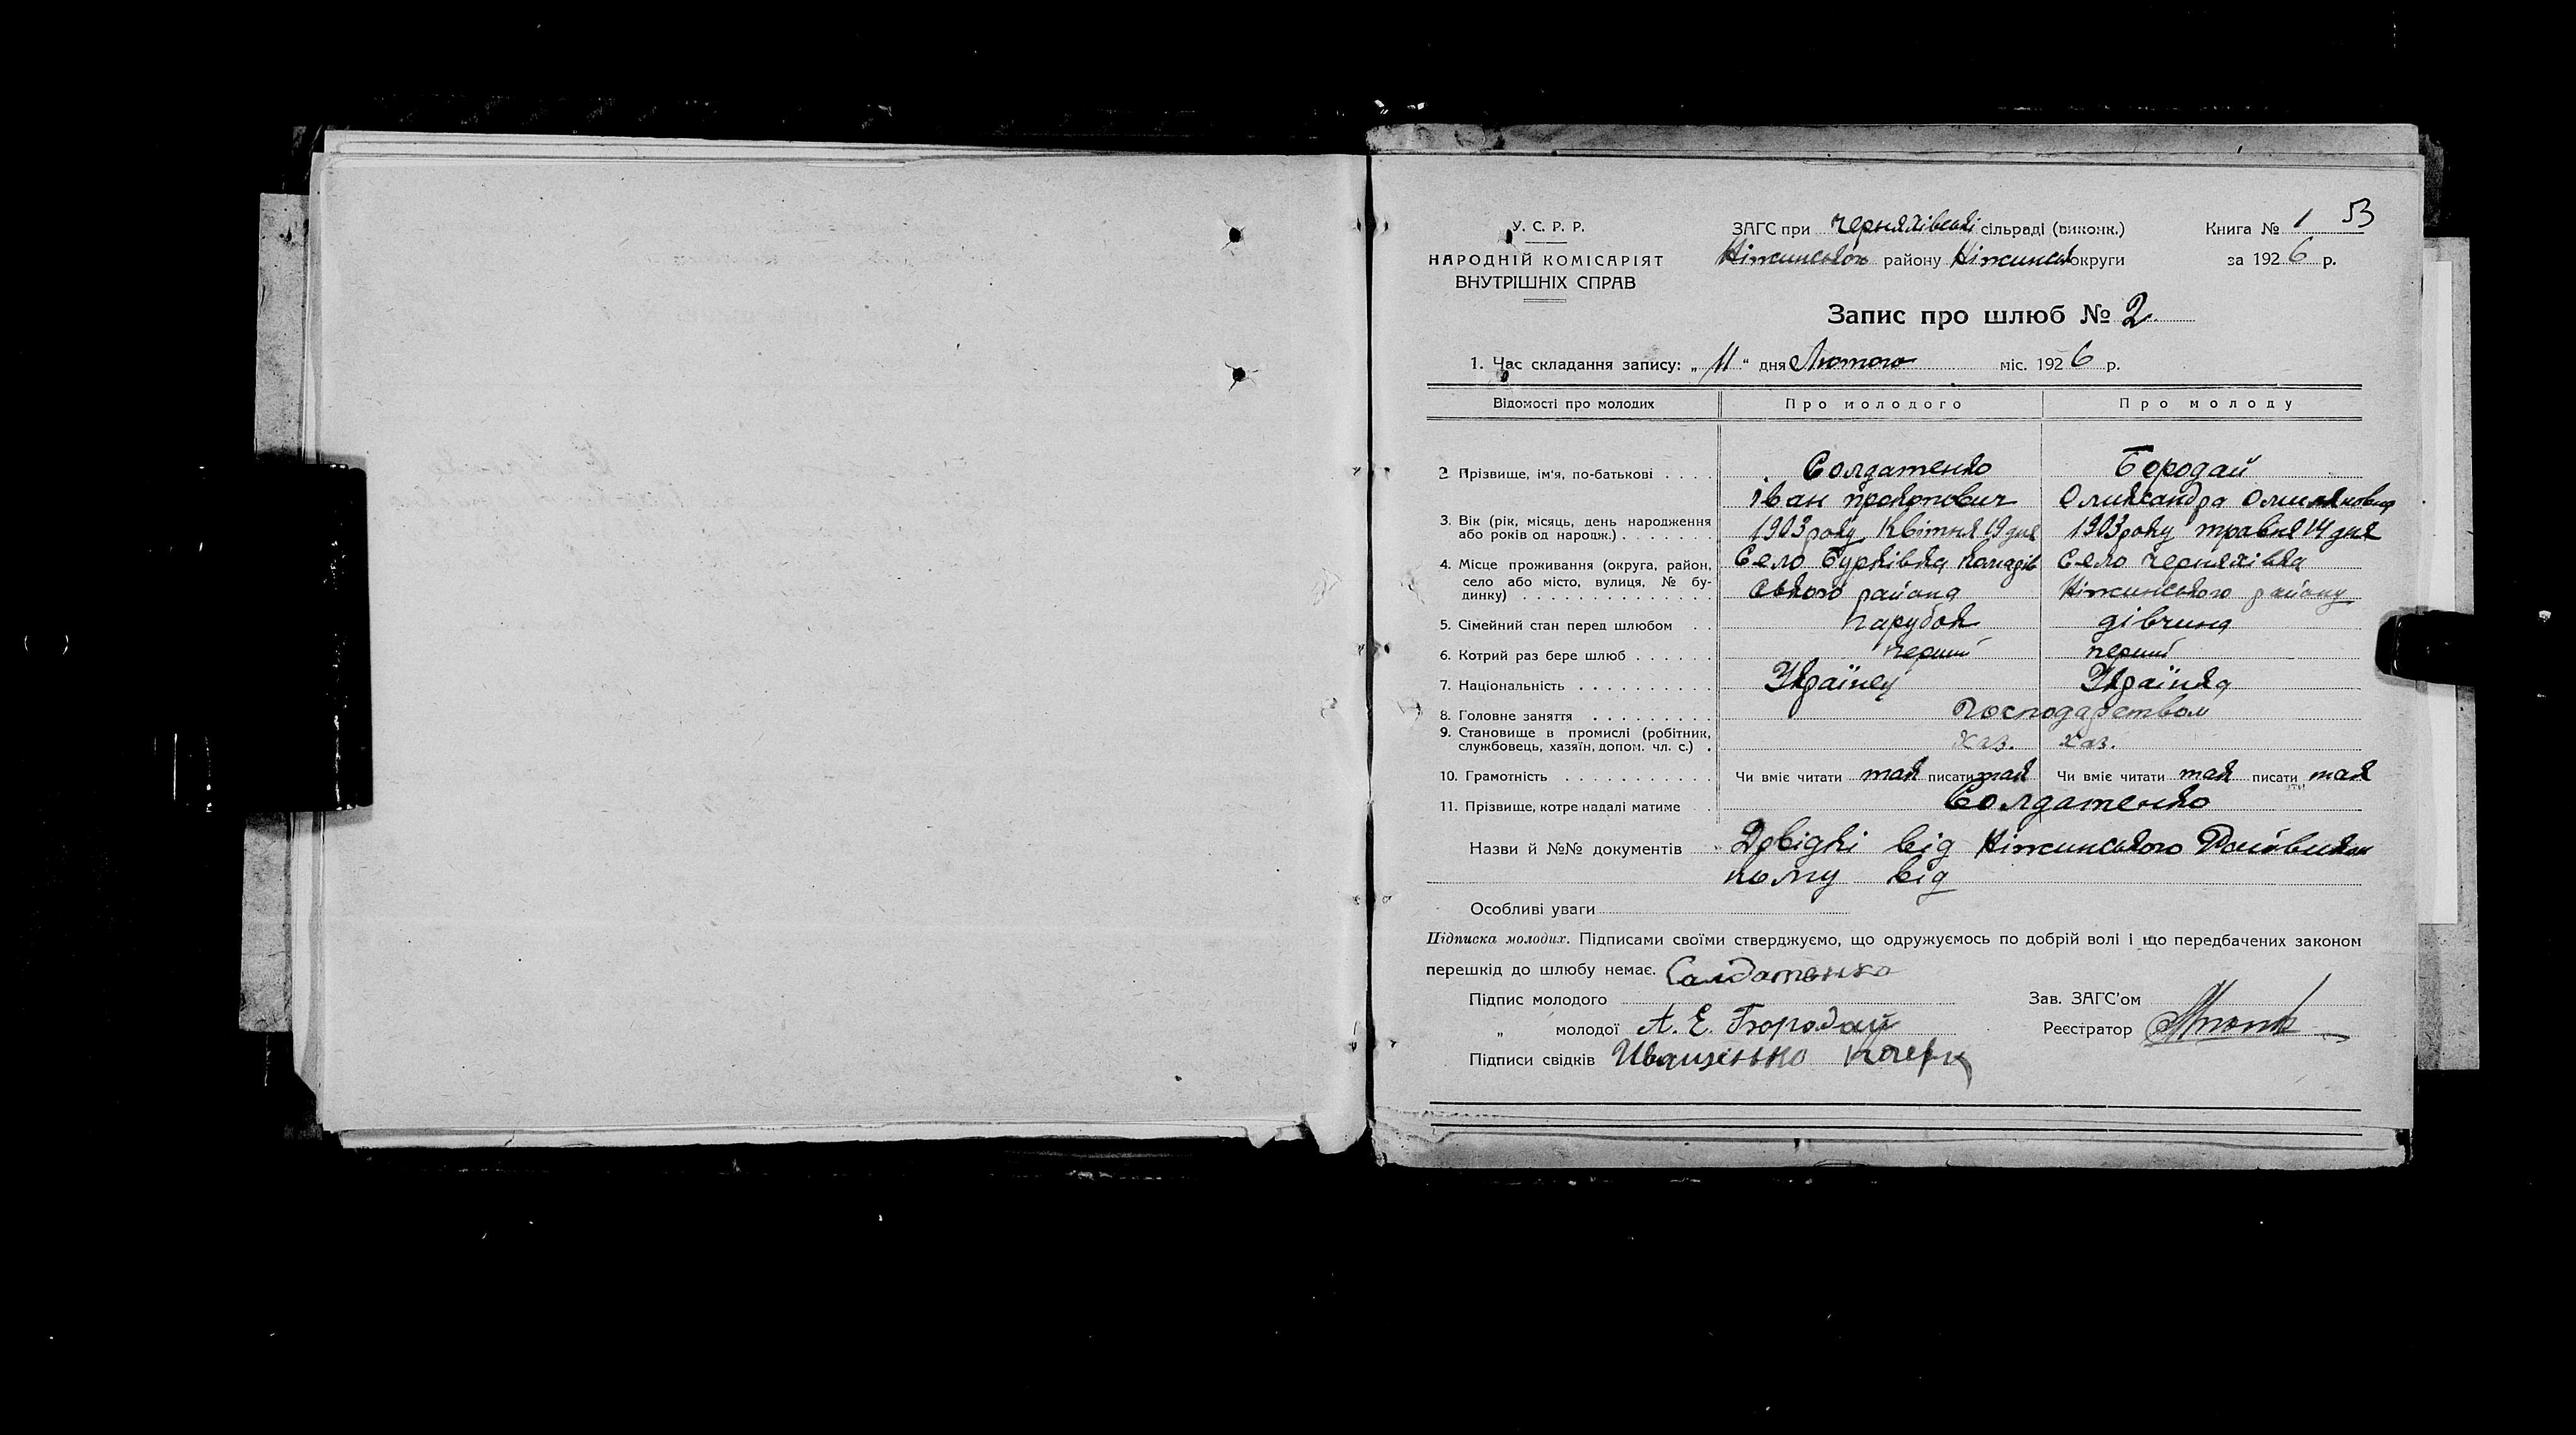 У. С. Р. Р.
НАРОДНІЙ КОМІСАРІЯТ
ВНУТРІШНІХ СПРАВ
ЗАГС при Черняхівські сільраді (виконк.)
Ніжинськом району Ніжинськ округи
Книга № 1 53
за 1926 р.
Запис про шлюб № 2
1. Час складання запису: „ 11 “ дня Лютого міс. 1926 р.
Відомості про молодих Про молодого Про молоду
2 Прізвище, ім'я, по-батькові . . . . Солдатенко Бородай
Іван Прокопович Оликсандра
3. Вік (рік, місяць, день народження
або років од народж.) . . . . . . . 1903 року Квітня 19 дня 1903 року травня 14 дня
4. Місце проживання (округа, район, Село Бурківка Комарів Село Черняхівка
село або місто, вулиця, № бу-
динку) . . . . . . . . . . . . . . ського района Ніжинського району
5. Сімейний стан перед шлюбом . . Парубок дівчина
6. Котрий раз бере шлюб . . . . . . перший перший
7. Національність . . . . . . . . . . Українец Українка
8. Головне заняття . . . . . . . . . Господарством
9. Становище в промислі (робітник,
службовець, хазяїн, допом. чл. с.) . Хаз. Хаз.
10. Грамотність . . . . . . . . . . . Чи вміє читати так писати так Чи вміє читати так писати так
11. Прізвище, котре надалі матиме . Солдатенко
Назви й №№ документів Довідкі від Ніжинського Райвикон
кому від
Особливі уваги
Підписка молодих. Підписами своїми стверджуємо, що одружуємось по добрій волі і що передбачених законом
перешкід до шлюбу немає. Салдатенко
Підпис молодого Зав. ЗАГС'ом
„ молодої А. Е. Бородай Реєстратор
Підписи свідків Иващенько